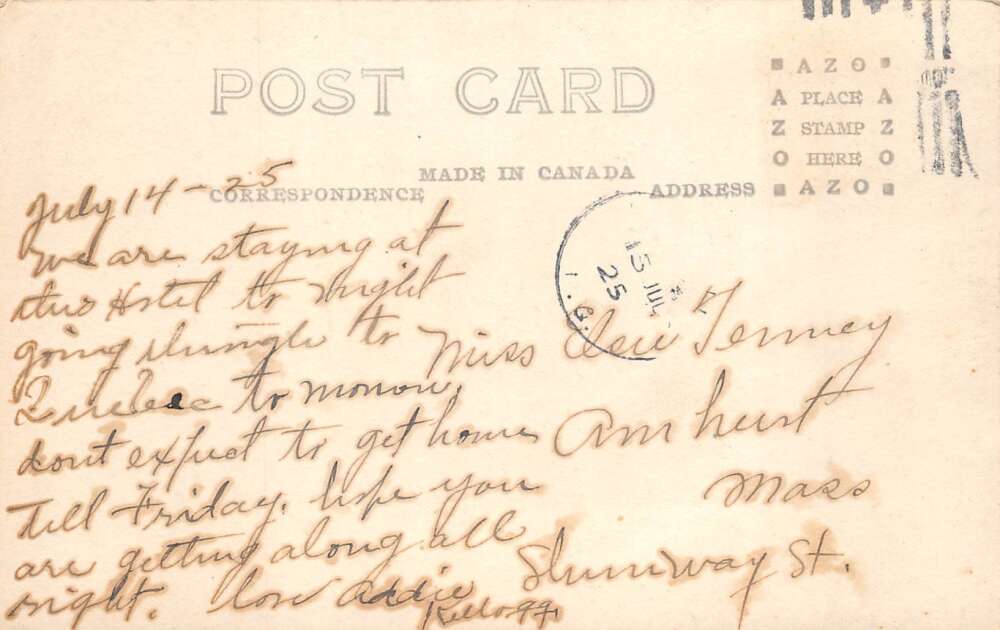 POST CARD
MADE IN CANADA
CORRESPONDENCE
ADDRESS
AZO
A PLACE A
Z STAMP Z
O HERE O
AZO
15 JUL
25
July 14 - 25
We are staying at
this Hotel to night
going through to
Quebec to morrow.
dont expect to get home
till Friday. hope you
are getting along all
right. love Addie
Kellogg.
Miss Tenney
Amherst
Mass
Shumway St.